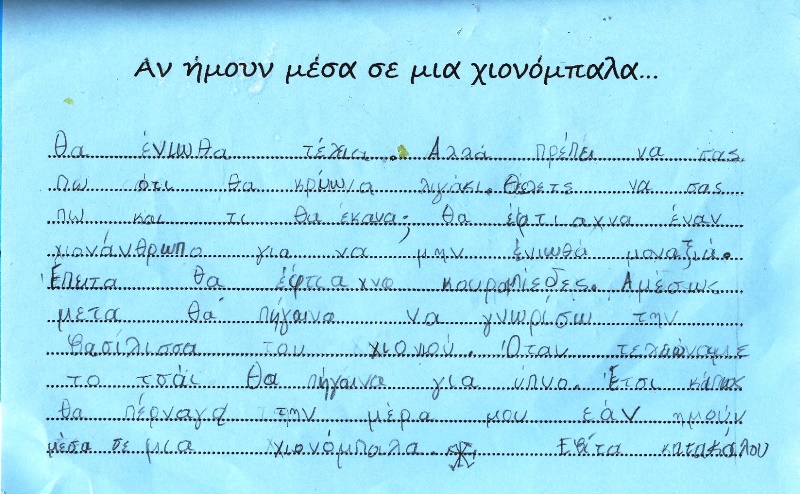 Αν ήμουν μέσα σε μια χιονόμπαλα...
θα ένιωθα τέλια. Αλλά πρέπει να σας
πω ότι θα κρύωνα λιγάκι. Θέλετε να σας
πω και τι θα έκανα; θα έφτιαχνα έναν
χιονάνθρωπο για να μην ένιωθα μοναξιά.
Έπειτα θα έφτιαχνα Αμέσως
μετα θα πήγαινα να γνωρίσω την
βασίλισσα του χιονιού. Όταν τελειώναμε
το τσάι θα πήγαινα για ύπνο. Έτσι κάπως
θα πέρναγα την μέρα μου εάν ημούν
μέσα σε μια χιονόμπαλα. Εβίτα